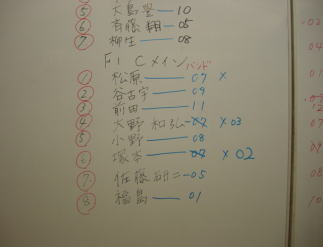 ⑤ 大島 — 10
⑥ 斉藤 翔 — 05
⑦ 柳生 — 08
F1 Cメイン バンド
① 松原 — 07 ×
② 谷古宇 — 09
③ 前田 — 11
④ 大野 和弘 — 02 × 03
⑤ 小野 — 08
⑥ 塚本 — 04 × 02
⑦ 佐藤 研二 — 05
⑧ 福島 — 01
02
04
01
09
08
10